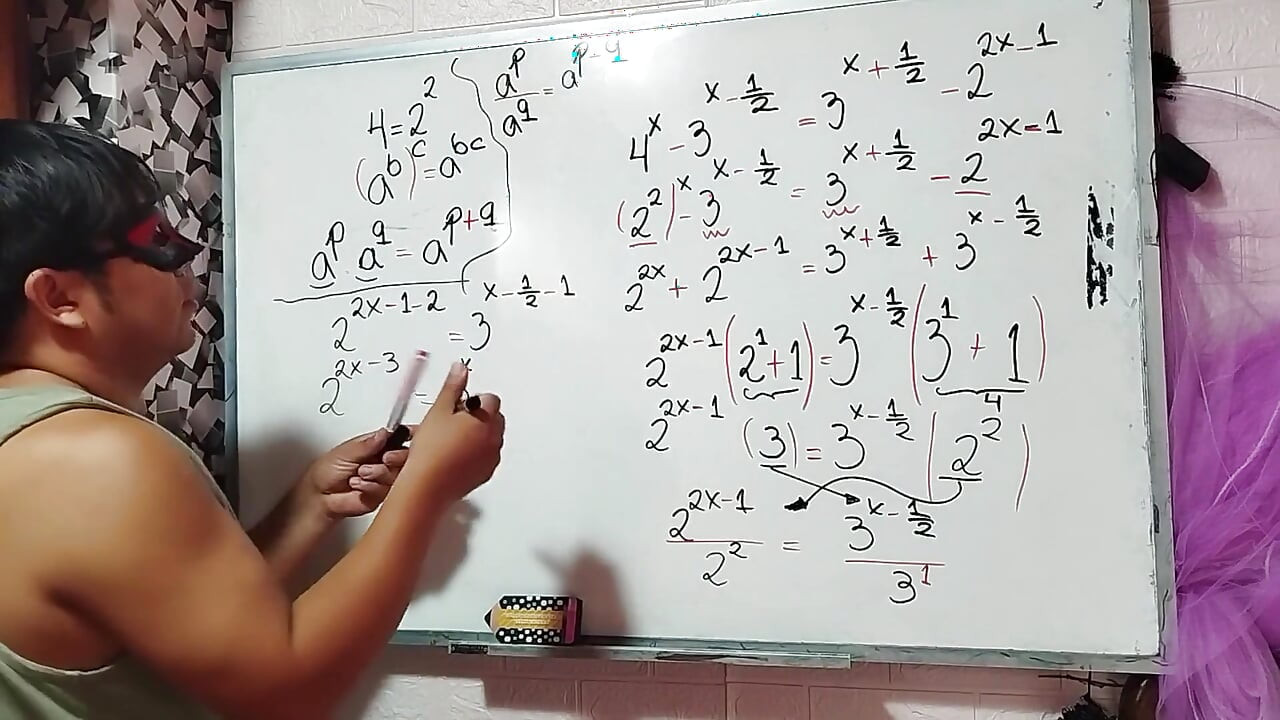 4=2^2
(a^b)^c=a^{bc}
a^p \cdot a^q=a^{p+q}
\frac{a^p}{a^q}=a^{p-q}
4^x-3^{x-\frac{1}{2}}=3^{x+\frac{1}{2}}-2^{2x-1}
(2^2)^x-3^{x-\frac{1}{2}}=3^{x+\frac{1}{2}}-2^{2x-1}
2^{2x}+2^{2x-1}=3^{x+\frac{1}{2}}+3^{x-\frac{1}{2}}
2^{2x-1}(2^1+1)=3^{x-\frac{1}{2}}(3^1+1)
4
2^{2x-1}(3)=3^{x-\frac{1}{2}}(2^2)
\frac{2^{2x-1}}{2^2}=\frac{3^{x-\frac{1}{2}}}{3^1}
2^{2x-1-2}=3^{x-\frac{1}{2}-1}
2^{2x-3}=